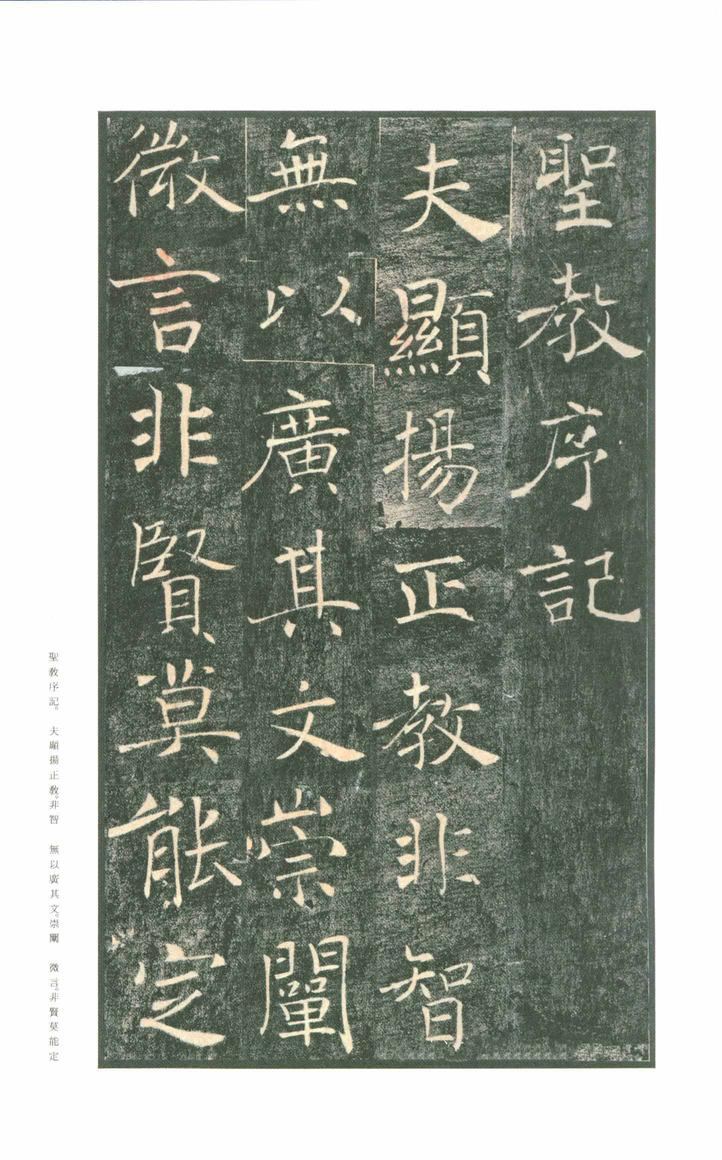 聖教序記
夫顯揚正教非智
無以廣其文崇闡
微言非賢莫能定
聖教序記。 夫顯揚正教。非智 無以廣其文。崇闡 微言。非賢莫能定